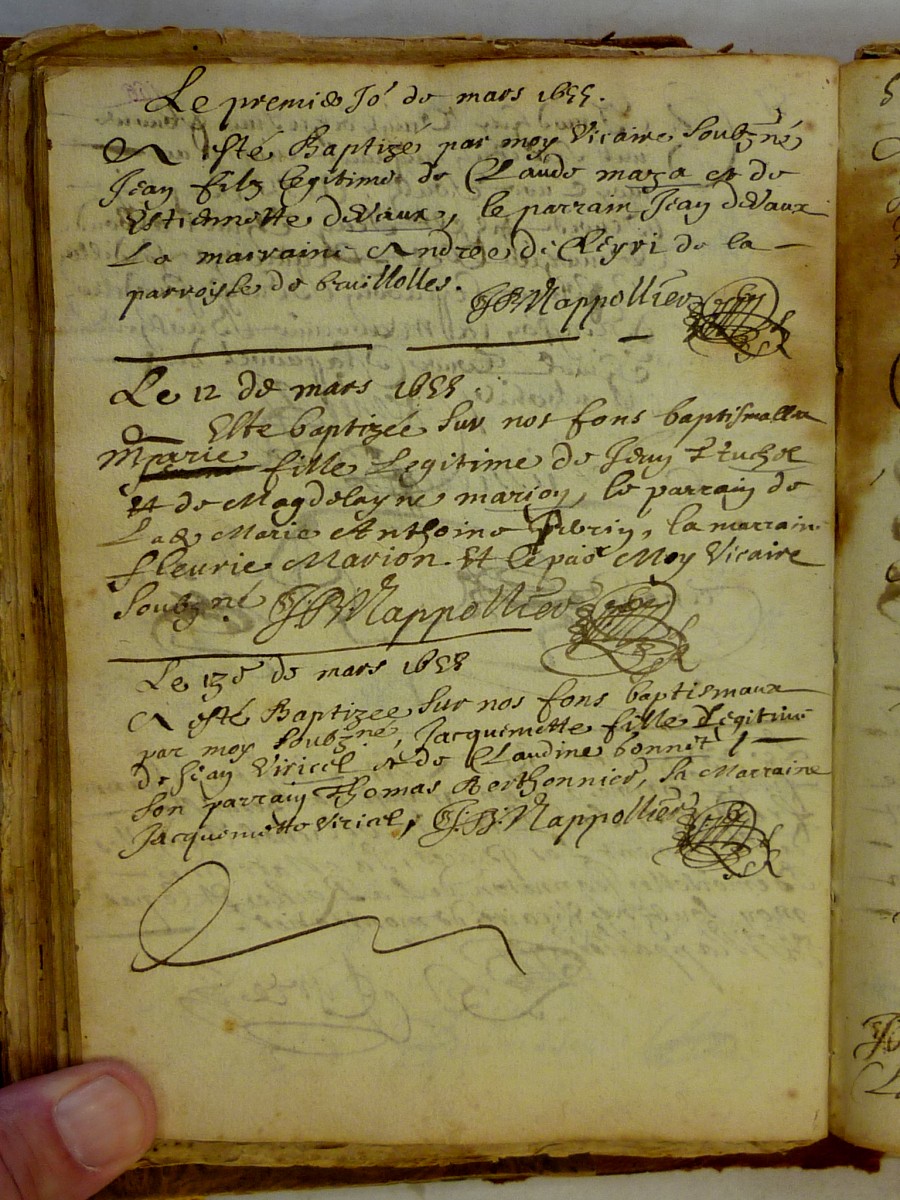 Le premier Jor de mars 1655.
A esté Baptizé par moy Vicaire soubzné
Jean filz legitime de Claude maza et de
Estiennette devaux, le parrain Jean devaux
La marraine Andree de de la
parroysse de
JBNappollier
Le 12 de mars 1655.
A Esté baptizée sur nos fons baptismallux
Marie fille Legitime de Jean
Et de Magdelayne marion, le parrain de
Lad. Marie Anthoine, la marraine
fleurie Marion. Et le par Moy Vicaire
soubzné JBNappollier
Le 13e de mars 1655
A esté Baptizee sur nos fons baptismaux
par moy soubzné, Jacquemette fille Legitime
de Jean Viricel et de Claudine bonnet /
son parrain Thomas Berthonnier, sa Marraine
Jacquemette viricel, J.B.Nappollier